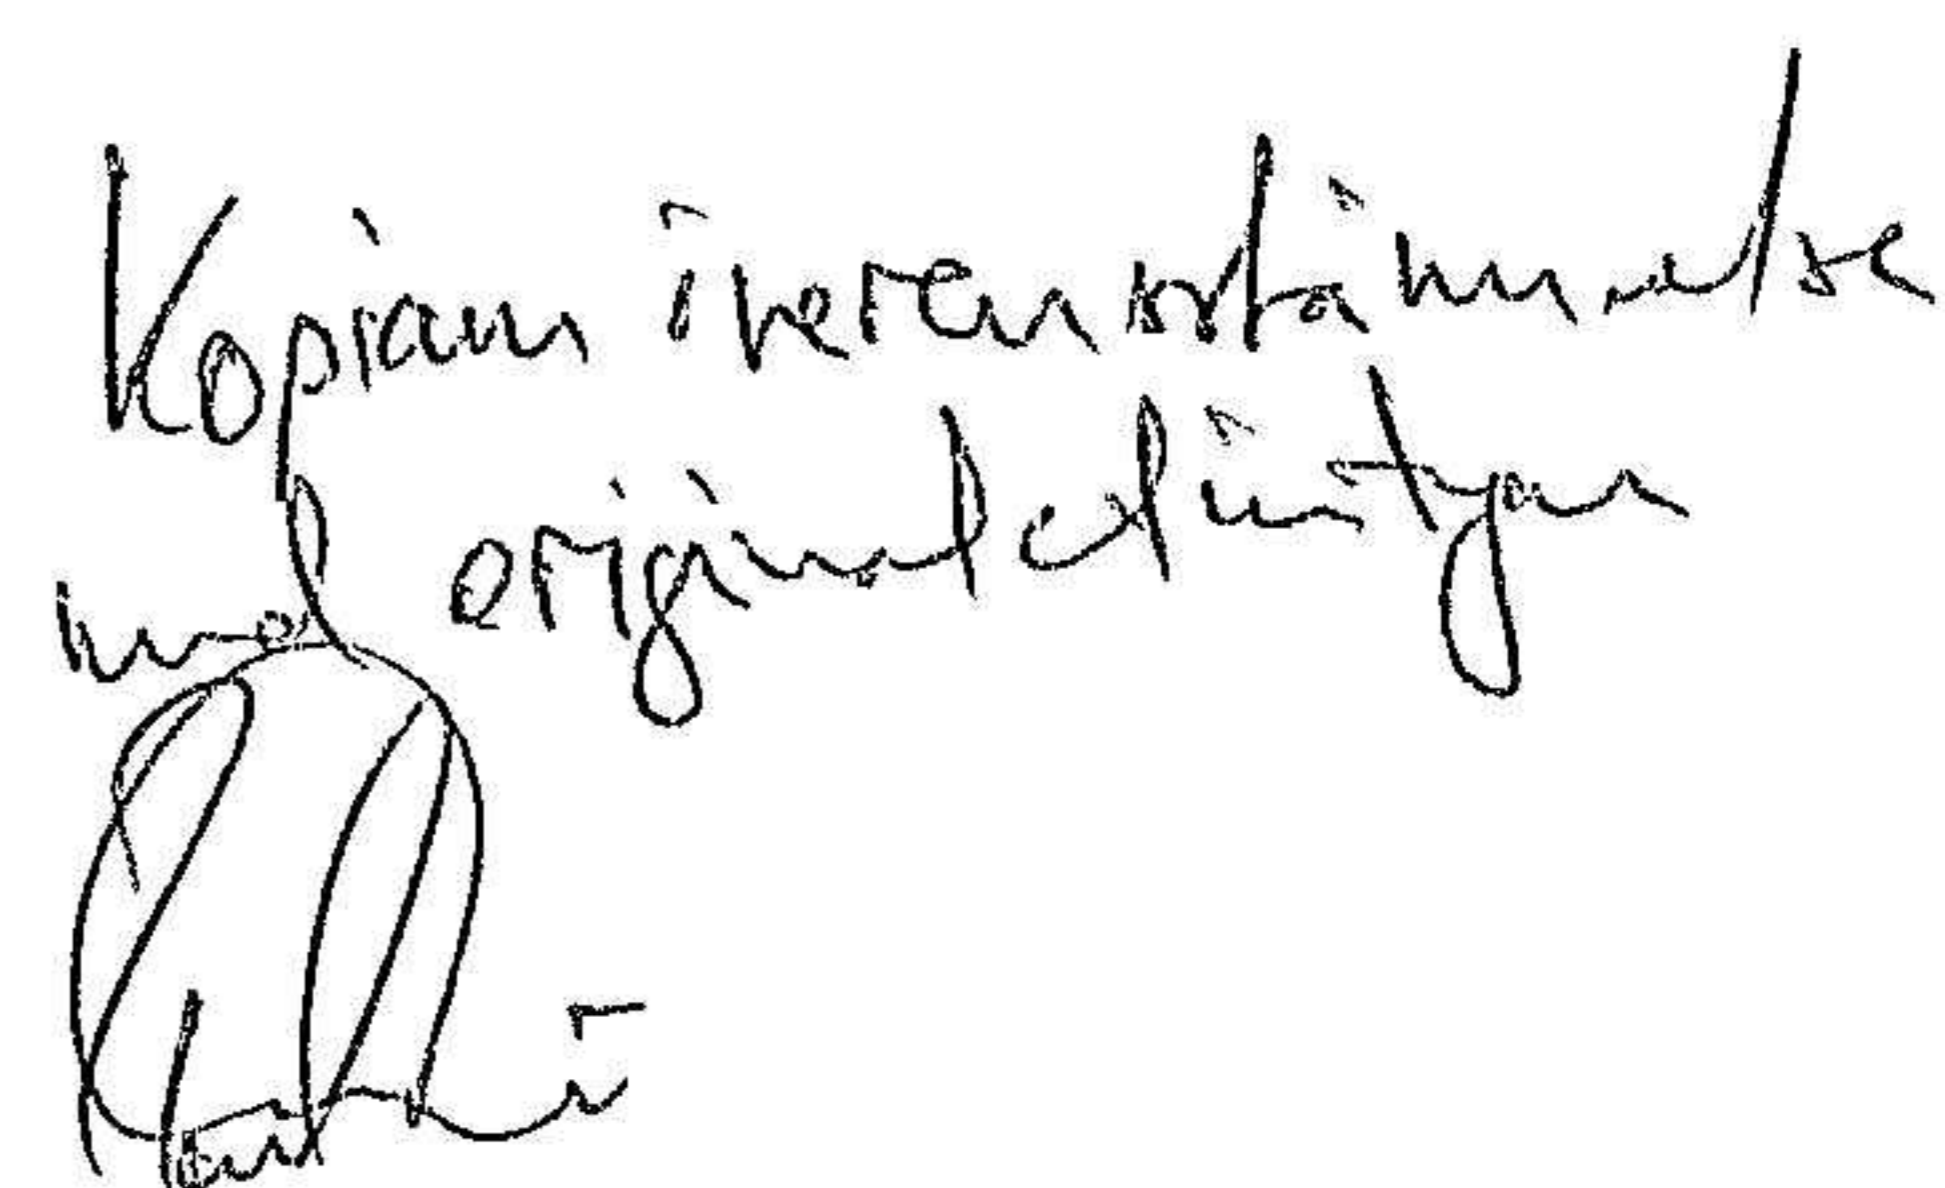 Kopians överensstämmelse
med originalet intygar